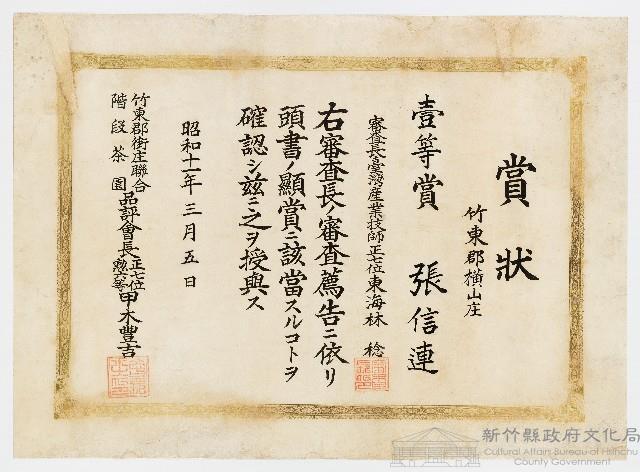 賞狀
竹東郡橫山庄
壹等賞 張信連
審查長臺灣產業技師正七位東海林 稔
右審查長ノ審查薦告ニ依リ
頭書ノ顯賞ニ該當スルコトヲ
確認シ茲ニ之ヲ授與ス
昭和十一年三月五日
竹東郡街庄聯合
階段茶園
品評會長
正七位
勲六等
甲木豐吉
新竹縣政府文化局
Cultural Affairs Bureau of Hsinchu
County Government